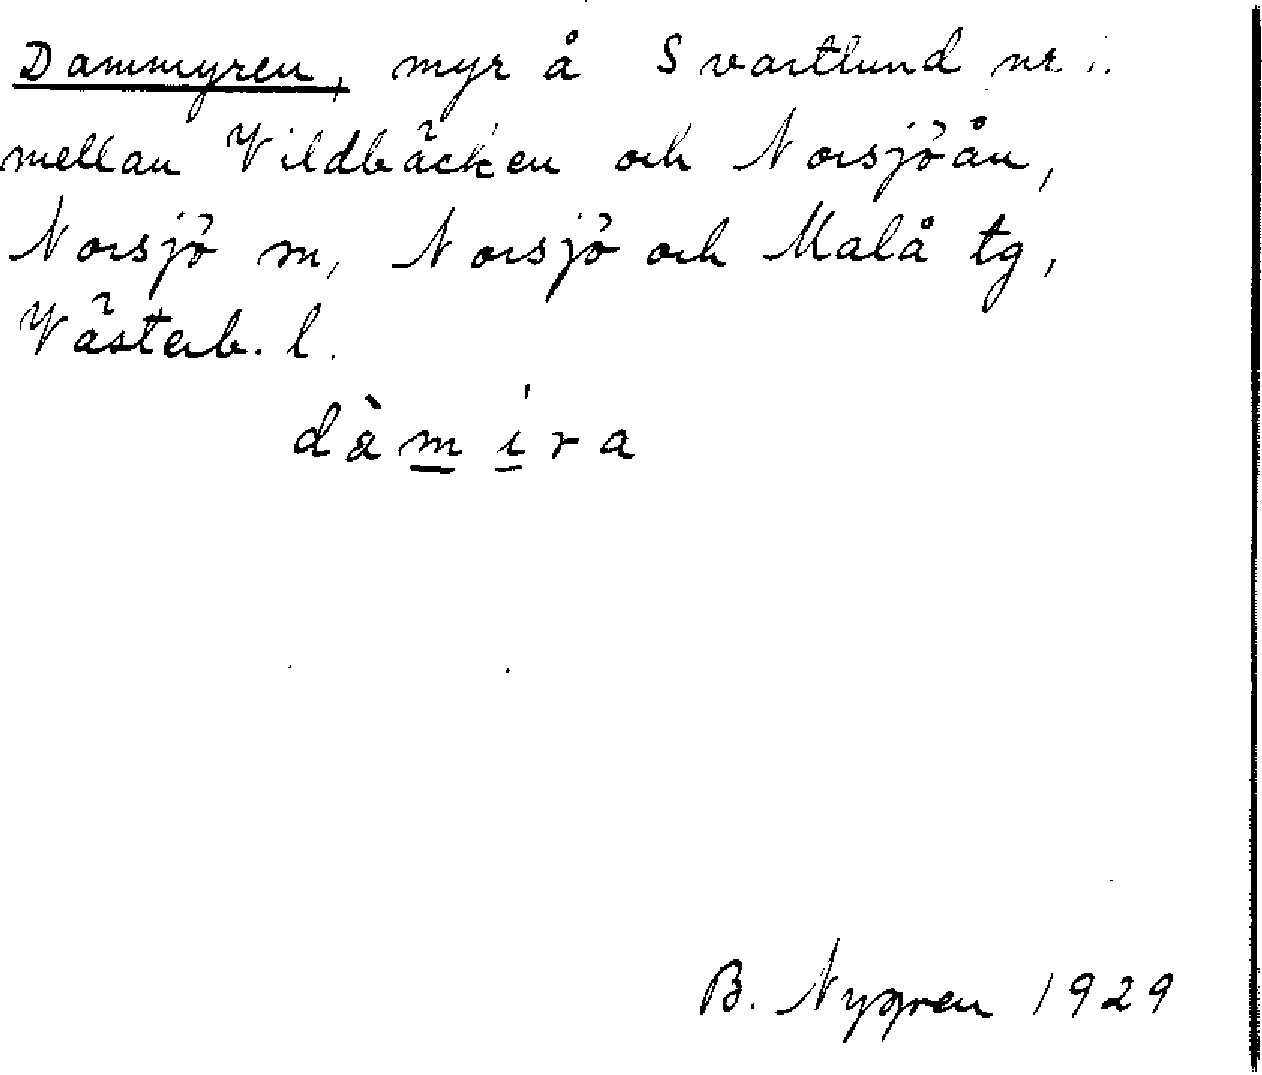 Dammyren, myr å Svartlund nr 1.
mellan Vildbäcken och Norsjöån,
Norsjö sn, Norsjö och Malå tg,
Västerb. l.
dàmira
B. Nygren 1929